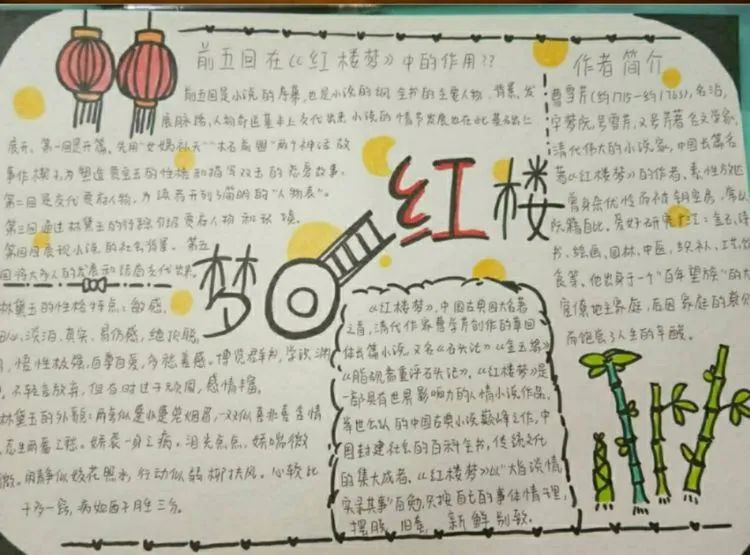 前五回在《《红楼梦》中的作用??
前五回是小说的序幕,也是小说的纲 全书的主要人物 背景,发
展脉络,人物命运基本上交代出来 小说的情节发展也在此基础上
展开。第一回是开篇,先用"女娲补天""木石前盟"两个神话故
事作楔
第二回是交代贾府人物,
第三回通过林黛玉的行踪介绍贾府人物和
第四回展现小说的社会背景。第五
回将
林黛玉的性格特点:敏感,
淡泊,真实,易伤感,绝顶聪
悟性极强,自尊自爱,多愁善感。博览群书,学识渊
不轻言放弃,但有时过于顽固,感情丰富。
林黛玉的外貌:两弯似蹙非蹙罥烟眉,一双似喜非喜含情
态生两靥之愁。娇袭一身之病。泪光点点,娇喘微
微。闲静似姣花照水,行动似弱柳扶风。心较比
干多一窍,病如西子胜三分。
红楼梦
作者简介
曹雪芹(约1715-约1763),名沾,
字梦阮,号雪芹,又号芹
清代伟大的小说家,中国长篇名
著《《红楼梦》的作者,素性放达
曾身杂优伶而被钥空房,常以
阮籍自比。爱好研究广泛:金石,诗
书,绘画,园林,中医,织补,工艺,饮
食等。他出身于一个"百年望族"的大
官僚地主家庭,后因家庭的衰
而饱尝了人生的辛酸。
《《红楼梦》,中国古典四大名著
之首,清代作家曹雪芹创作的章回
体长篇小说 又名《石头记》《金玉缘》
《脂砚斋重评石头记》。《红楼梦》是
一部具有世界影响力的人情小说作品,
举世公认的中国古典小说巅峰之作,中
国封建社会的百科全书,传统文化
的集大成者。《《红楼梦》以"大旨谈情,
实录其事"自勉,只按自己的事体情理,
摆脱 旧套, 新鲜别致。